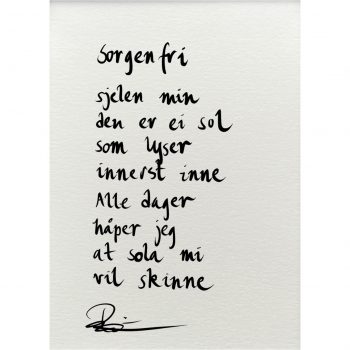 sorgenfri
sjelen min
den er ei sol
som lyser
innerst inne
Alle dager
håper jeg
at sola mi
vil skinne